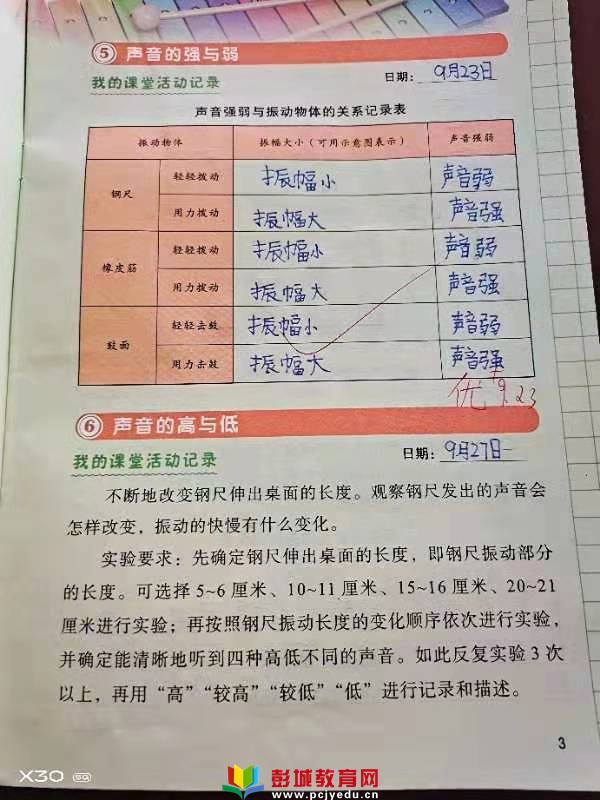 5 声音的强与弱
我的课堂活动记录 日期：9月23日
声音强弱与振动物体的关系记录表
振动物体 振幅大小（可用示意图表示） 声音强弱
钢尺 轻轻拨动 振幅小 声音弱
用力拨动 振幅大 声音强
橡皮筋 轻轻拨动 振幅小 声音弱
用力拨动 振幅大 声音强
鼓面 轻轻击鼓 振幅小 声音弱
用力击鼓 振幅大 声音强
优 9.23
6 声音的高与低
我的课堂活动记录 日期：9月27日
不断地改变钢尺伸出桌面的长度。观察钢尺发出的声音会
怎样改变，振动的快慢有什么变化。
实验要求：先确定钢尺伸出桌面的长度，即钢尺振动部分
的长度。可选择5~6厘米、10~11厘米、15~16厘米、20~21
厘米进行实验；再按照钢尺振动长度的变化顺序依次进行实验，
并确定能清晰地听到四种高低不同的声音。如此反复实验3次
以上，再用“高”“较高”“较低”“低”进行记录和描述。
3
X30 5G
彭城教育网
www.pcjyedu.cn